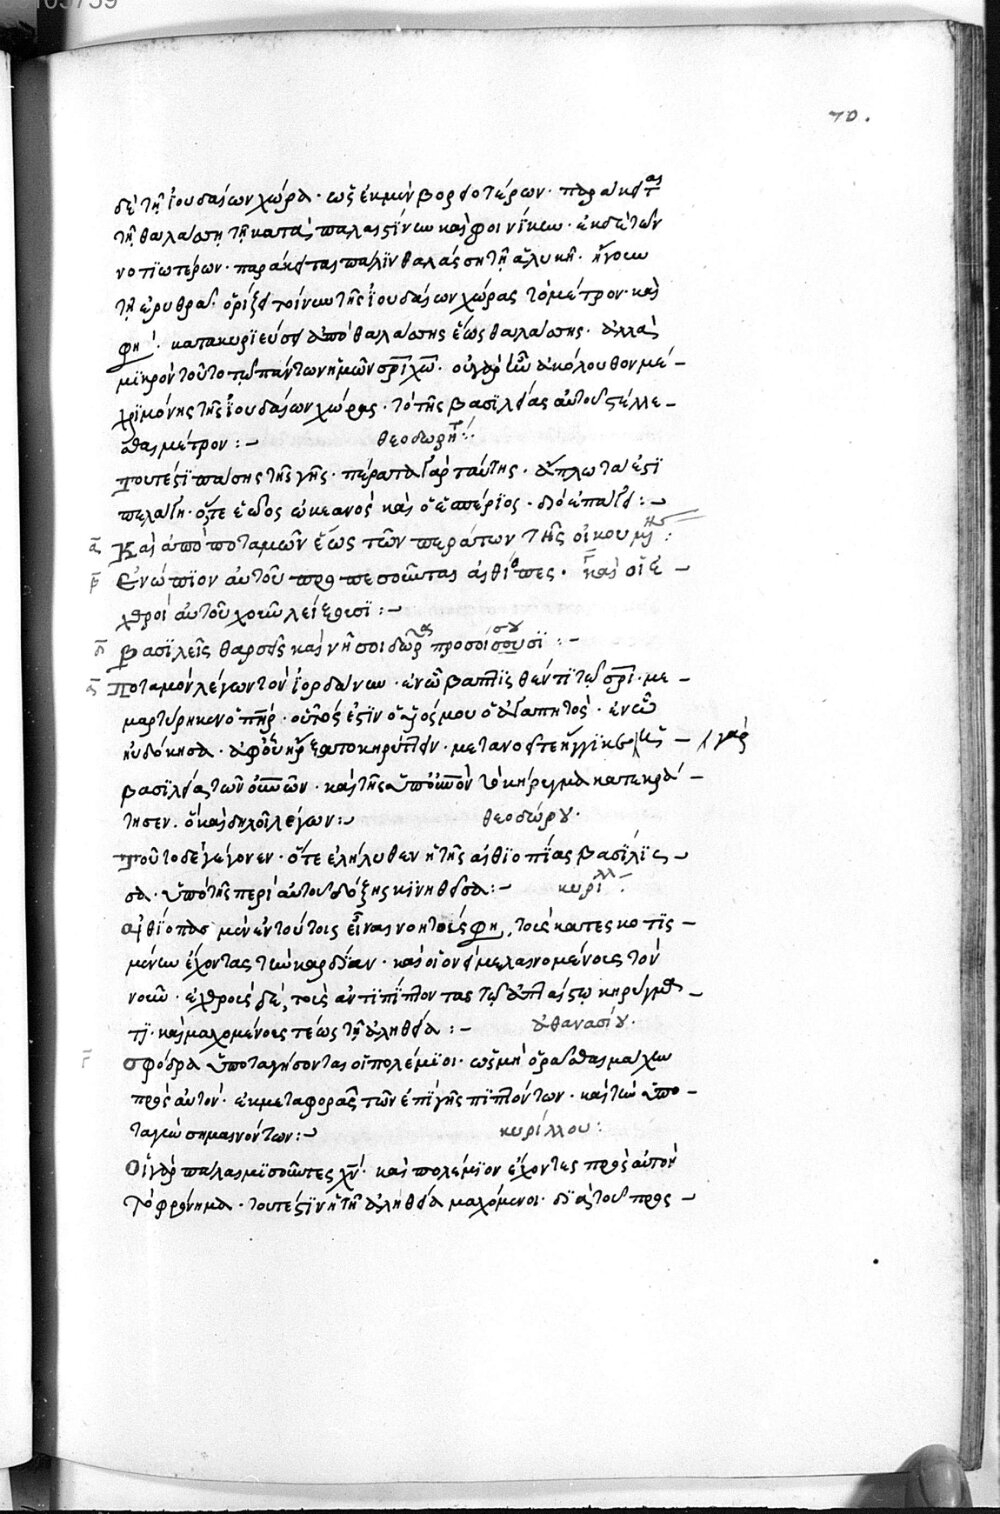 70.
δὲ τῆ ἰουδαίων χώρα· ὡς ἐκ μὲν βορειοτέρων· παράκειται
τῆ θαλάσση τῆ κατὰ παλαιστίνων καὶ φοινίκων· ἐκ δὲ τῶν
νοτιωτέρων· παράκειται πάλιν θαλάσση τῆ ἁλυκῆ· ἤγουν
τῆ ἐρυθρᾶ· ὁρίζει τοίνυν τῆς ἰουδαίων χώρας τὸ μέτρον· καὶ
φησί· κατακυριεύσει ἀπὸ θαλάσσης ἕως θαλάσσης· ἀλλὰ
μικρὸν τοῦτο τῷ πάντων ἡμῶν σρι χω· οὐ γὰρ ἦν ἀκόλουθον μέ-
χρι μόνης τῆς ἰουδαίων χώρας· τὸ τῆς βασιλείας αὐτοῦ στέλλε-
σθαι μέτρον:-
θεοδωρήτ:
τουτέστι πάσης τῆς γῆς· πέρατα γὰρ ταύτης· ἄπλωτα ἐστὶ
πελάγη· ὅ,τε ἑῶος ὠκεανὸς καὶ ὁ ἑσπέριος· διὸ ἐπάγει:-
α Καὶ ἀπὸ ποταμῶν ἕως τῶν περάτων τῆς οἰκουμένης:
β Ἐνώπιον αὐτοῦ προπεσοῦνται αἰθίοπες· γ καὶ οἱ ἐ-
χθροὶ αὐτοῦ χοῦν λείξουσι:-
δ Βασιλεῖς θαρσεῖς καὶ νῆσοι δῶρα προσοίσουσι:-
α Ποταμὸν λέγων τὸν ἰορδάνην· ἐν ᾧ βαπτισθέντι τῷ σρι· με-
μαρτύρηκεν ὁ πηρ· οὗτός ἐστιν ὁ υἱός μου ὁ ἀγαπητὸς· ἐν ᾧ
ηὐδόκησα· ἀφ' οὗ ἤρξατο κηρύττειν· μετανοεῖτε ἤγγικεν γὰρ ἡ
βασιλεία τῶν οὐνῶν· καὶ τῆς ὑπ' οὐνὸν τὸ κήρυγμα κατεκρά-
τησεν. ὃ καὶ δηλοῖ λέγων:-
θεοδώρου·
Τοῦτο δὲ γέγονεν· ὅτε ἐλήλυθεν ἡ τῆς αἰθιοπίας βασίλις-
σα· ὑπὸ τῆς περὶ αὐτοῦ δόξης κινηθεῖσα:-
κυρίλλ:
αἰθίοπας μὲν ἐν τούτοις εἶναι νοητοὺς φη, τοὺς κατεσκοτισ-
μένην ἔχοντας τὴν καρδίαν· καὶ οἱονεὶ μελαινομένους τὸν
νοῦν· ἐχθροὺς δὲ, τοὺς ἀντιπίπτοντας τῷ ἁπλαίστω κηρύγμα-
τι· καὶ μαχομένους τέως τῆ ἀληθεία:-
ἀθανασίου·
γ σφόδρα ὑποταγήσονται οἱ πολέμιοι· ὡς μὴ ὁρᾶσθαι μάχην
πρὸς αὐτόν· ἐκ μεταφορᾶς τῶν ἐπὶ γῆς πιπτόντων· καὶ τὴν ὑπο-
ταγὴν σημαινόντων:-
κυρίλλου:
Οἱ γὰρ πάλαι μισοῦντες χν· καὶ πολέμιον ἔχοντες πρὸς αὐτὸν
τὸ φρόνημα· τουτέστιν ἡ τῆ ἀληθεία μαχόμενοι· διὰ τοῦ πρὸς-